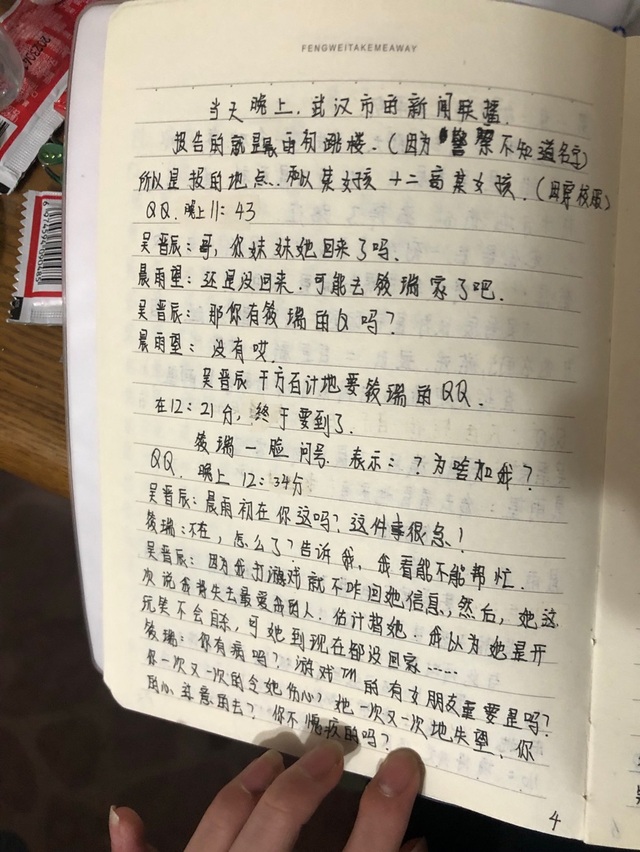 FENGWEITAKEMEAWAY
当天晚上,武汉市的新闻联播.
报告的就是晨雨初跳楼.(因为警察不知道名字)
所以是报的地点.和以某女孩 十二高某女孩.(因穿校服)
QQ.晚上11:43
吴晋辰:哥,你妹妹她回来了吗.
晨雨望:还是没回来.可能去筱瑞家了吧.
吴晋辰:那你有筱瑞的Q吗?
晨雨望:没有哎.
吴晋辰千方百计地要筱瑞的QQ.
在12:21分,终于要到了.
筱瑞一脸问号.表示:?为啥加我?
QQ. 晚上12:34分
吴晋辰:晨雨初在你这吗?这件事很急!
筱瑞:不在,怎么了?告诉我,我看能不能帮忙.
吴晋辰:因为我打游戏就不咋回她信息,然后,她这
次说我将失去最爱我的人.估计指她.我以为她是开
玩笑不会自杀,可她到现在都没回家……
筱瑞:你有病吗?游戏TM的有女朋友重要是吗?
你一次又一次的令她伤心?她一次又一次地失望、你
的心 过意的去?你不愧疚的吗?
4